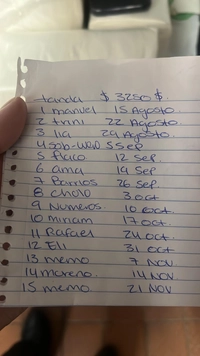 tanda $ 3250 $
1 manuel 15 Agosto
2 trini 22 Agosto
3 lia 29 Agosto
4 Sob-wayo 5 Sep
5 flaco 12 Sep.
6 ama 19 Sep
7 Barrios 26 Sep
8 Cholo 3 oct
9 Numeros. 10 oct.
10 Miriam 17 oct.
11 Rafael 24 oct.
12 Eli 31 oct
13 memo 7 NOV
14 moreno. 14 NOV
15 memo 21 NOV